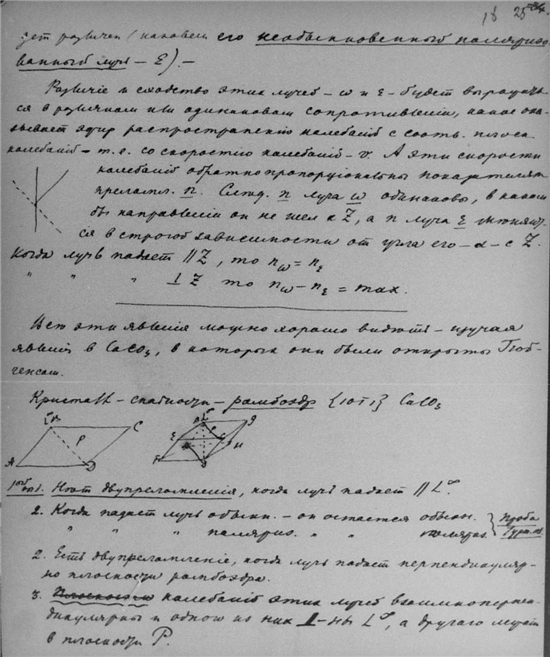 18 25
дет различен (назовем его необыкновенный поляризо
ванный лучъ – ε). –
Различіе и сходство этих лучей – ω и ε – будет выражать
ся в различном или одинаковом сопротивленіи, какое ока
зывает эфир распространенію колебаній с соотв. плоск.
колебаній – т.е. со скоростію колебаній – v. А эти скорости
колебаній обратнопропорціональны показателям
преломл. n. След. n луча ω одинаково, в каком
бы направленіи он не шел к Z, а n луча ε меняет
ся в строгой зависимости от угла его – α – с Z.
Когда лучъ падает ∥ Z, то nω = nε
" " " ⊥ Z то nω – nε = max.
Все эти явленія можно хорошо видеть – изучая
явленія в CaCO3, в котором они были открыты Гюй
генсом.
Кристалл – спайности – ромбоэдр {1011} CaCO3
A B C D P
1. Нет двупреломленія, когда лучъ падает ∥ L
2. Когда падает лучъ обыкн. – он остается обыкн.
" " " поляриз. " " поляриз.
Проба
2. Есть двупреломленіе, когда лучъ падает перпендикуляр
но плоскости ромбоэдра.
3. колебаній этих лучей взаимноперпен
дикулярны и одной из них ⊥-на L, а другаго лежит
в плоскости P.